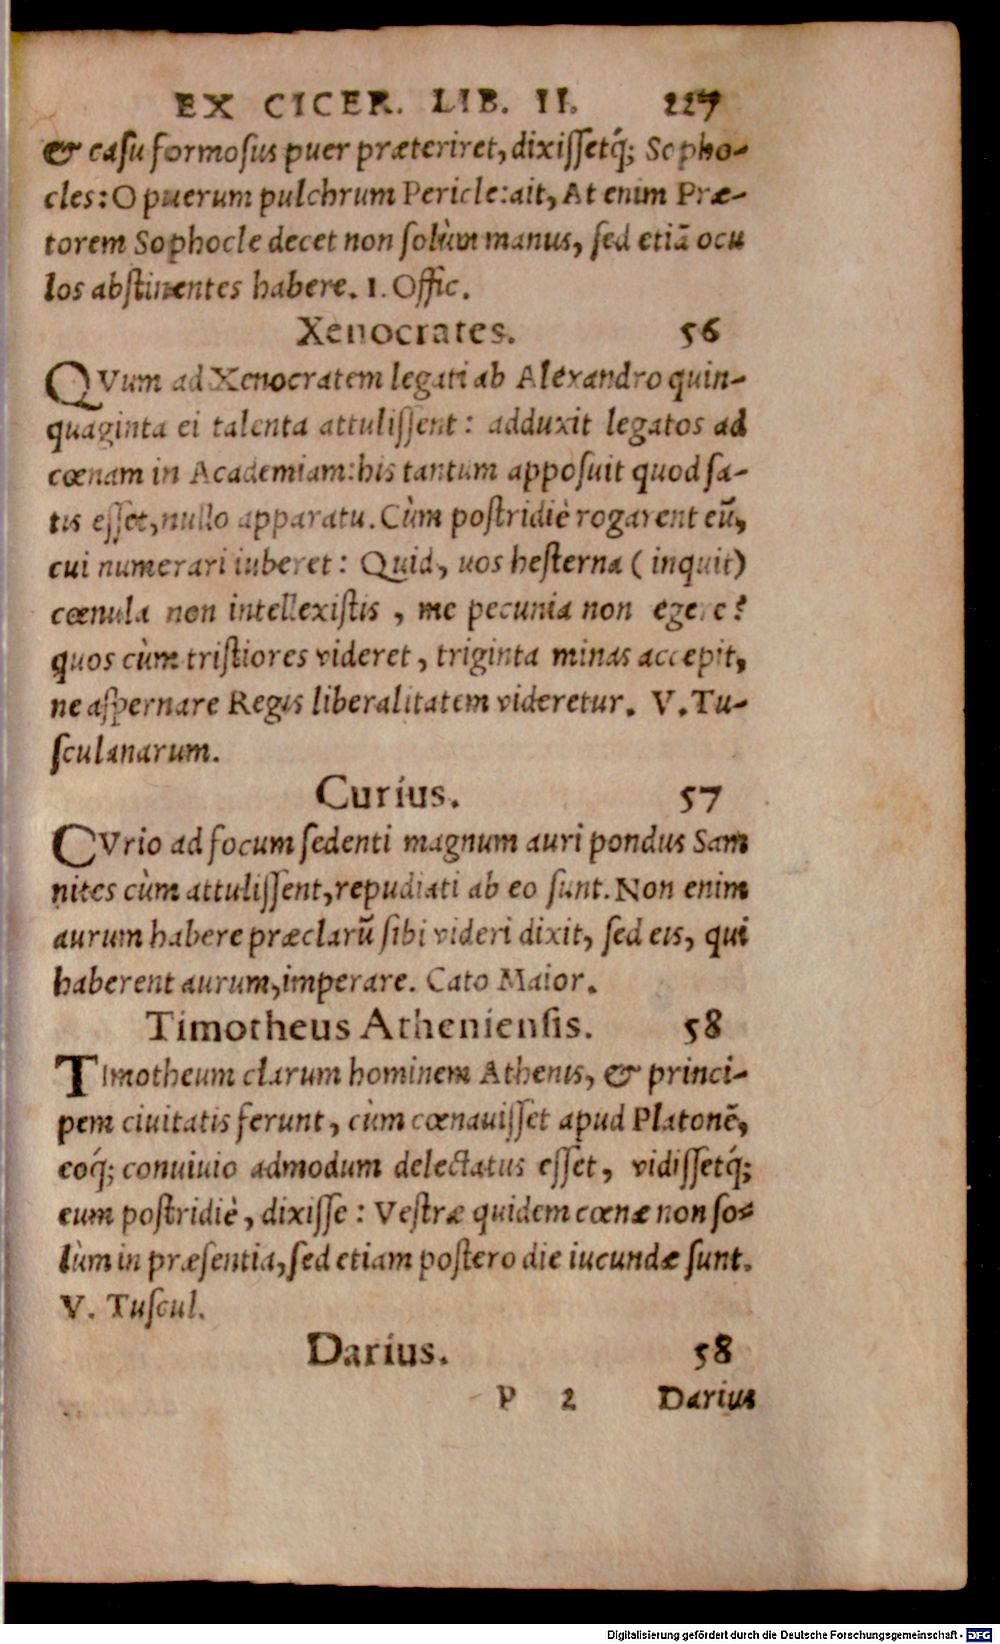 EX CICER. LIB. II. 227
& casu formosus puer præteriret, dixissetq́; Sopho-
cles: O puerum pulchrum Pericle: ait, At enim Præ-
torem Sophocle decet non solùm manus, sed etiā ocu
los abstinentes habere. 1. Offic.
Xenocrates. 56
QVum ad Xenocratem legati ab Alexandro quin-
quaginta ei talenta attulissent: adduxit legatos ad
cœnam in Academiam: his tantum apposuit quod sa-
tis esset, nullo apparatu. Cùm postridiè rogarent eū,
cui numerari iuberet: Quid, uos hesterna (inquit)
cœnula non intellexistis, me pecunia non egere?
quos cùm tristiores videret, triginta minas accepit,
ne aspernare Regis liberalitatem videretur. V. Tu-
sculanarum.
Curius. 57
CVrio ad focum sedenti magnum auri pondus Sam
nites cùm attulissent, repudiati ab eo sunt. Non enim
aurum habere præclarū sibi videri dixit, sed eis, qui
haberent aurum, imperare. Cato Maior.
Timotheus Atheniensis. 58
TImotheum clarum hominem Athenis, & princi-
pem ciuitatis ferunt, cùm cœnauisset apud Platonē,
eoq́; conuiuio admodum delectatus esset, vidissetq́;
eum postridiè, dixisse: Vestræ quidem cœnæ non so-
lùm in præsentia, sed etiam postero die iucundæ sunt.
V. Tuscul.
Darius. 58
P 2 Darius
Digitalisierung gefördert durch die Deutsche Forschungsgemeinschaft - DFG